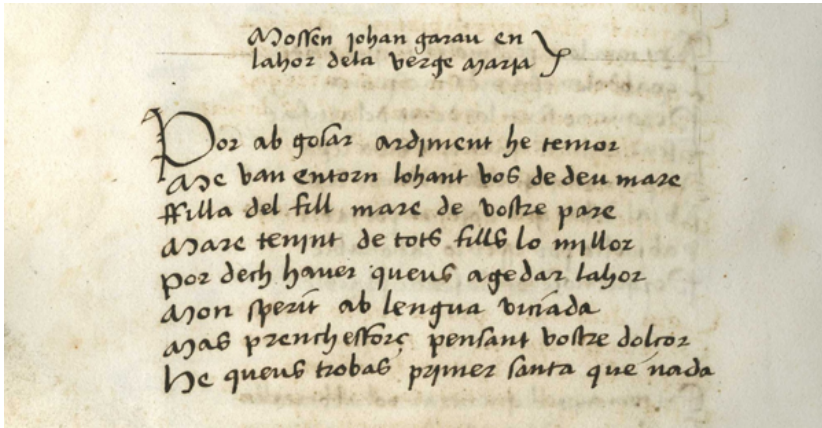 Mossen johan garau en
lahor dela verge maria
Por ab gosar ardiment he temor
Me van entorn lohant vos de deu mare
ffilla del fill mare de vostre pare
Mare tenint de tots fills lo millor
por dech haver queus age dar lahor
Mon sperit ab lengua viciada
Mas prench esforç pensant vostre dolçor
he queus trobas primer santa que nada